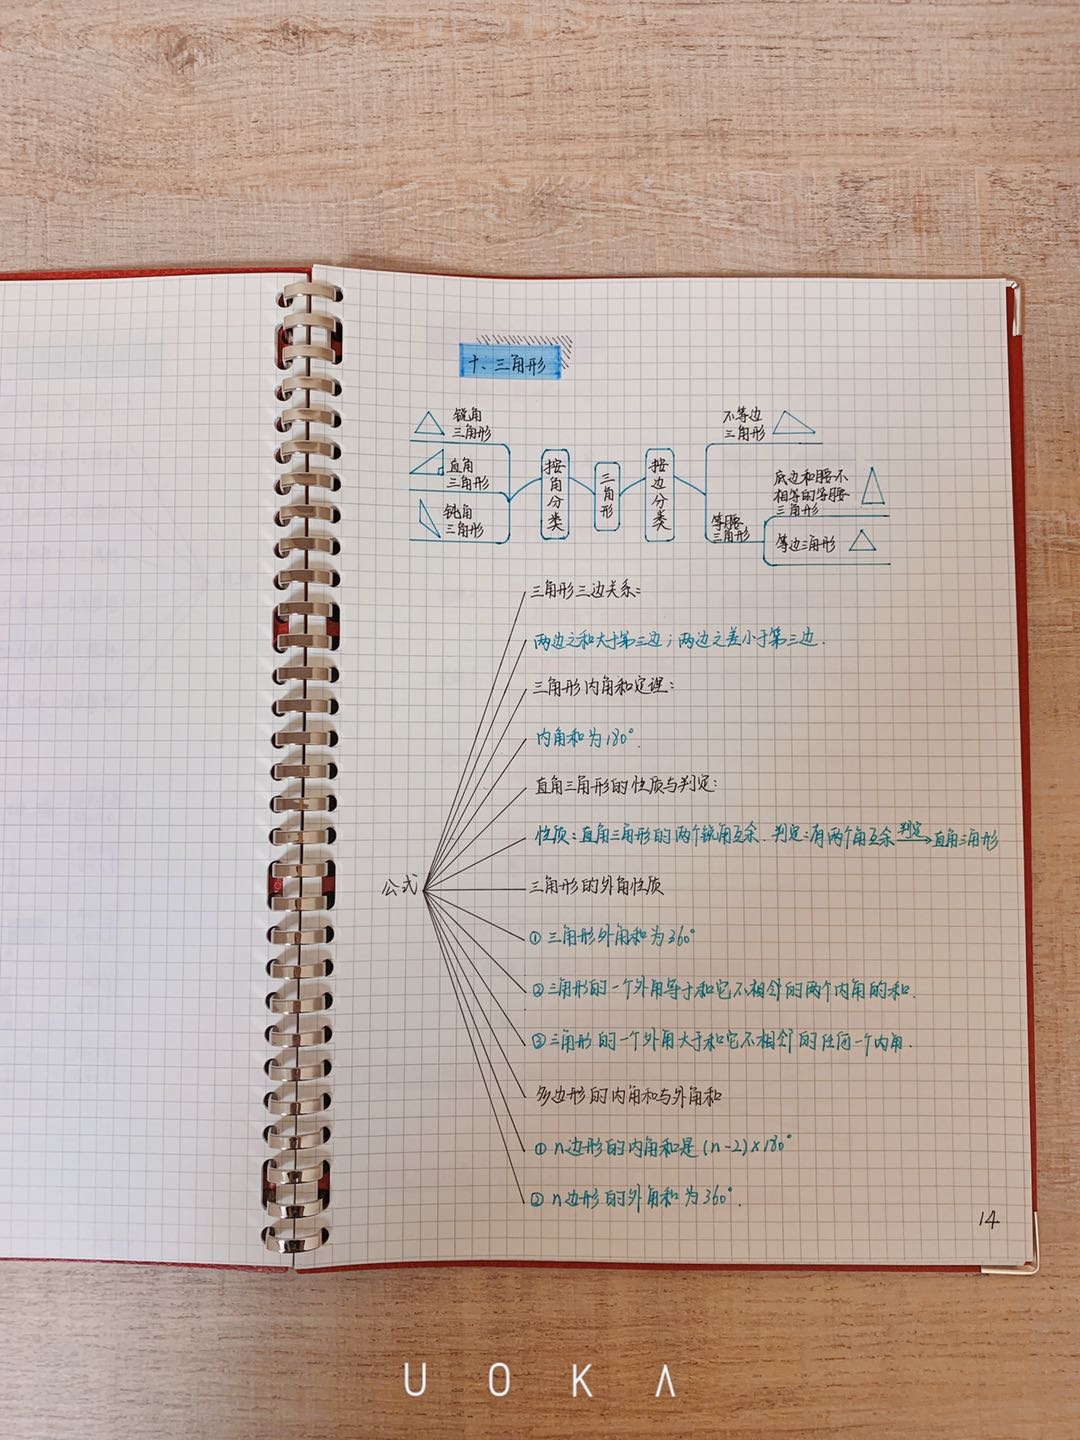 十、三角形
锐角
三角形
直角
三角形
钝角
三角形
按角分类
三角形
按边分类
不等边
三角形
等腰
三角形
底边和腰不
相等的等腰
三角形
等边三角形
公式
三角形三边关系:
两边之和大于第三边;两边之差小于第三边.
三角形内角和定理:
内角和为180°.
直角三角形的性质与判定:
性质:直角三角形的两个锐角互余.判定:有两个角互余 判定→ 直角三角形
三角形的外角性质
①三角形外角和为360°
②三角形的一个外角等于和它不相邻的两个内角的和.
③三角形的一个外角大于和它不相邻的任何一个内角.
多边形的内角和与外角和
①n边形的内角和是(n-2)×180°
②n边形的外角和为360°.
14
UOKA